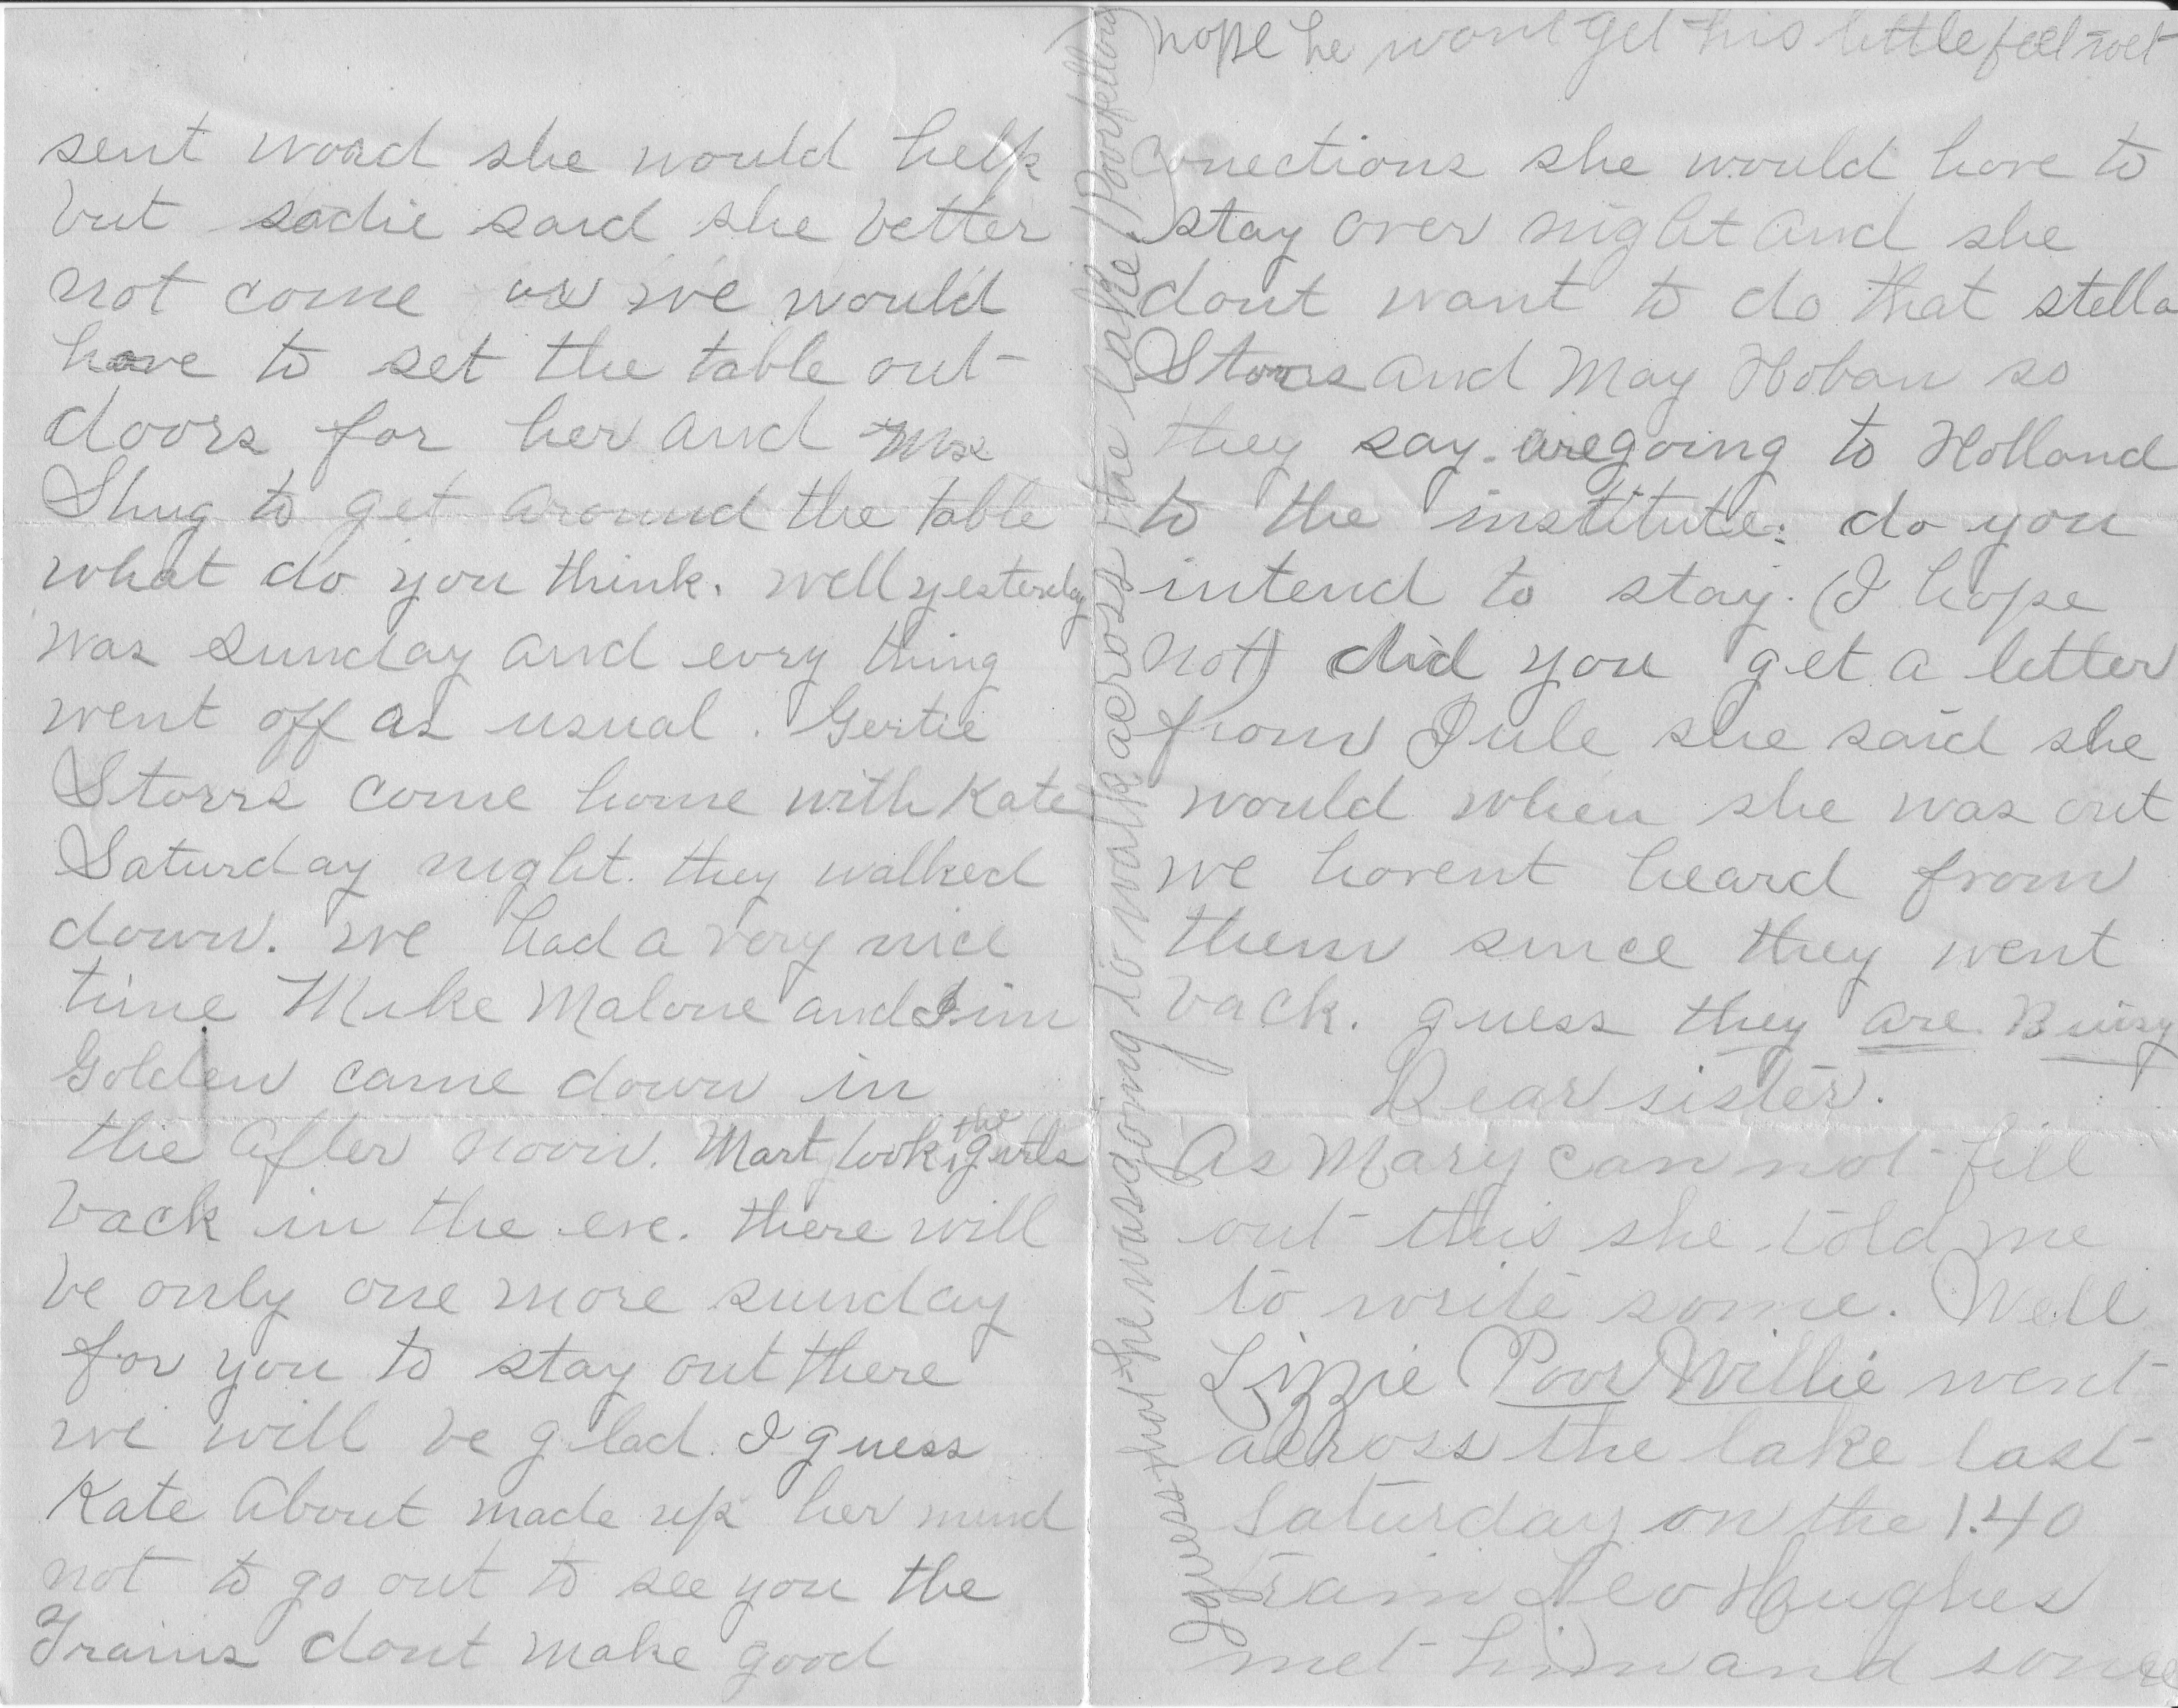 sent word she would help
but sadie said she better
not come as we would
have to set the table out-
doors for her and Mrs
Shug to get around the table
what do you think. well yesterday
was sunday and evry thing
went off as usual. Gertie
Storrs come home with Kate
Saturday night. they walked
down. we had a very nice
time Mike Malone and Jim
Golden came down in
the After noon. Mart took the gurls
back in the eve. there will
be only one more sunday
for you to stay out there
we will be glad. I guess
Kate About made up her mind
not to go out to see you the
Trains dont make good
conections she would have to
stay over night and she
dont want to do that stella
Storrs and May Hoban so
they say. are going to Holland
to the institute: do you
intend to stay. (I hope
not) did you get a letter
from Jule she said she
would when she was out
we havent heard from
them since they went
back. guess they are Buisy
Dear sister.
As Mary can not fill
out this she told me
to write some. Well
Lizzie Poor Willie went
across the lake last
Saturday on the 1.40
train Leo Hughes
met him and some
I guess that he was going to walk across the lake. (Poor fellow)
hope he wont get his little feet wet